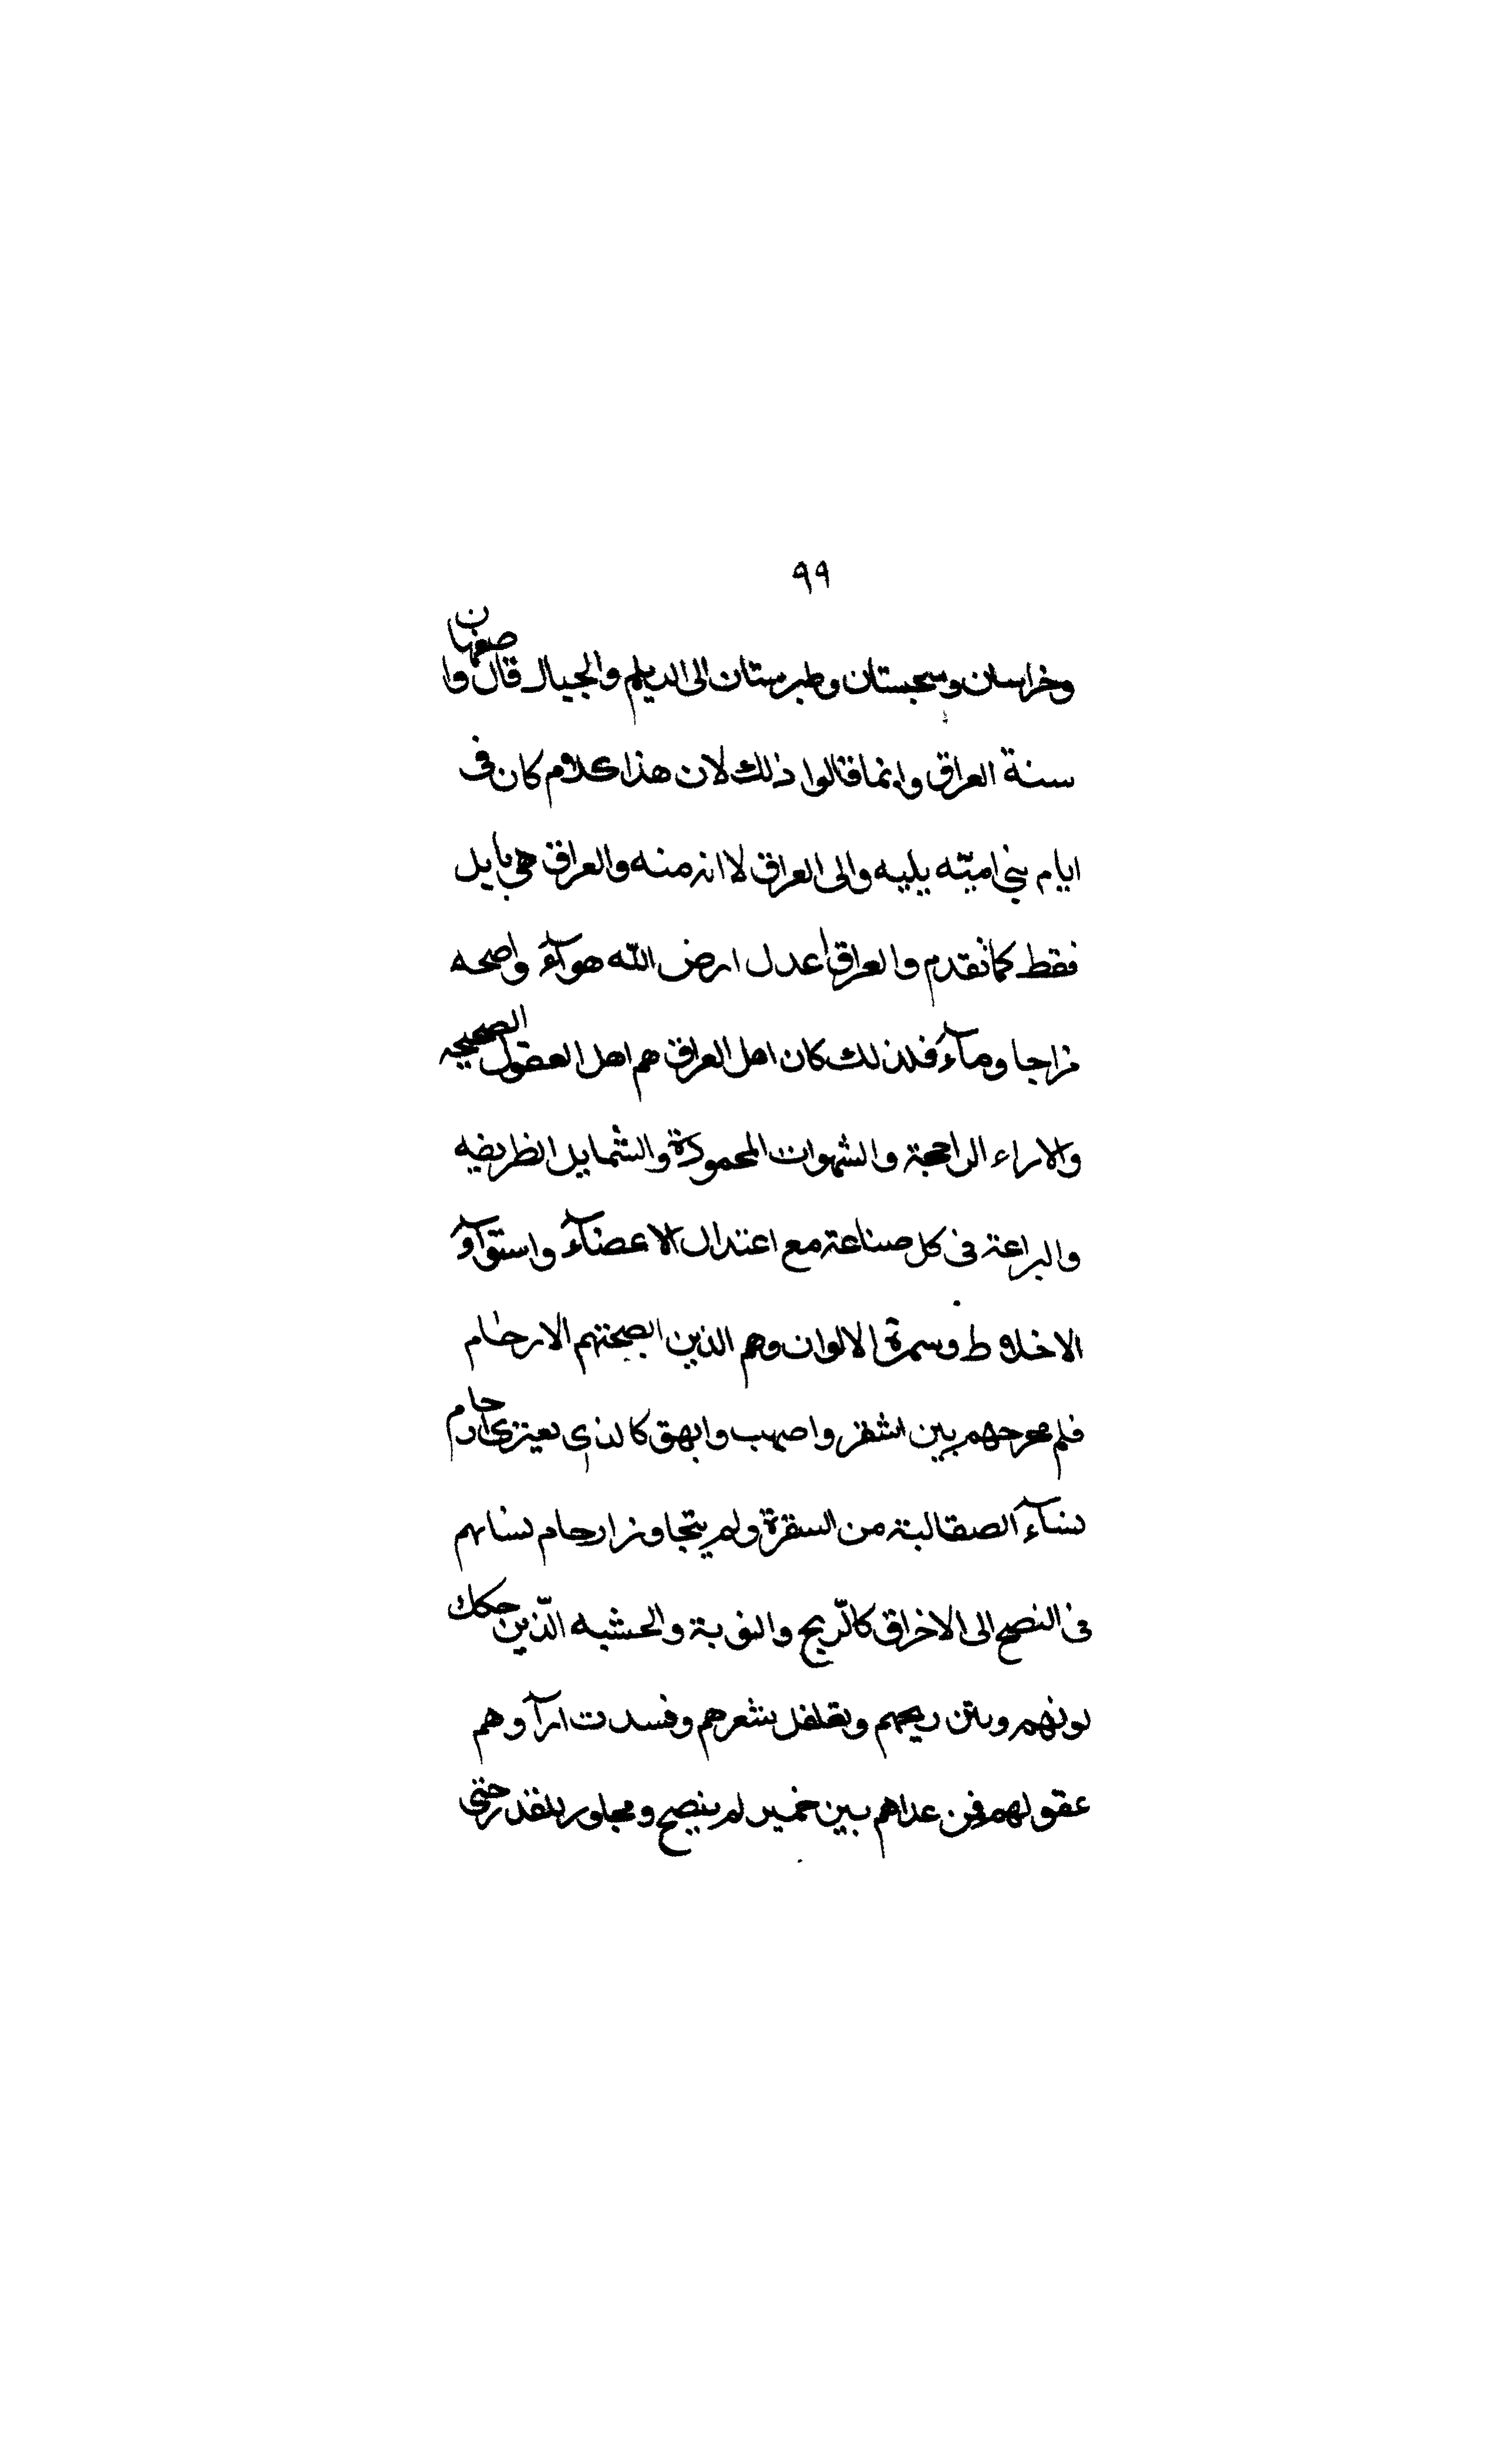 ٩٩
وخراسان وسجستان وطبرستان الى الديلم والجبال قال واصفهان
سنة العراق وانما قالوا ذلك لان هذا كلام كان فى
ايام بنى اميّه يليه والى العراق لا انه منه والعراق هى بابل
فقط كما تقدم والعراق اعدل ارض الله هوآء واصحه
مزاجا ومآء فلذلك كان اهل العراق هم اهل العقول الصحيحه
والاراء الراجحة والشهوات المحمودة والشمايل الظريفه
والبراعة فى كل صناعة مع اعتدال الاعضآء واستوآو
الاخلاط وسمرة الالوان وهم الذين انضجتهم الارحام
فلم تخرجهم بين اشقر واصهب وابهق كالذى يعترى ارحام
نسآء الصقالبة من السقرة ولم يتجاوز ارحام نسايهم
فى النضج الى الاحراق كالزنج والنوبة والحشبه الذّين حكك
لونهم ونتن ريحهم وتفلفل شعرهم وفسدت ارآوهم
عقولهم فمن عداهم بين خمير لم ينضج ومجاور للقدر حتى